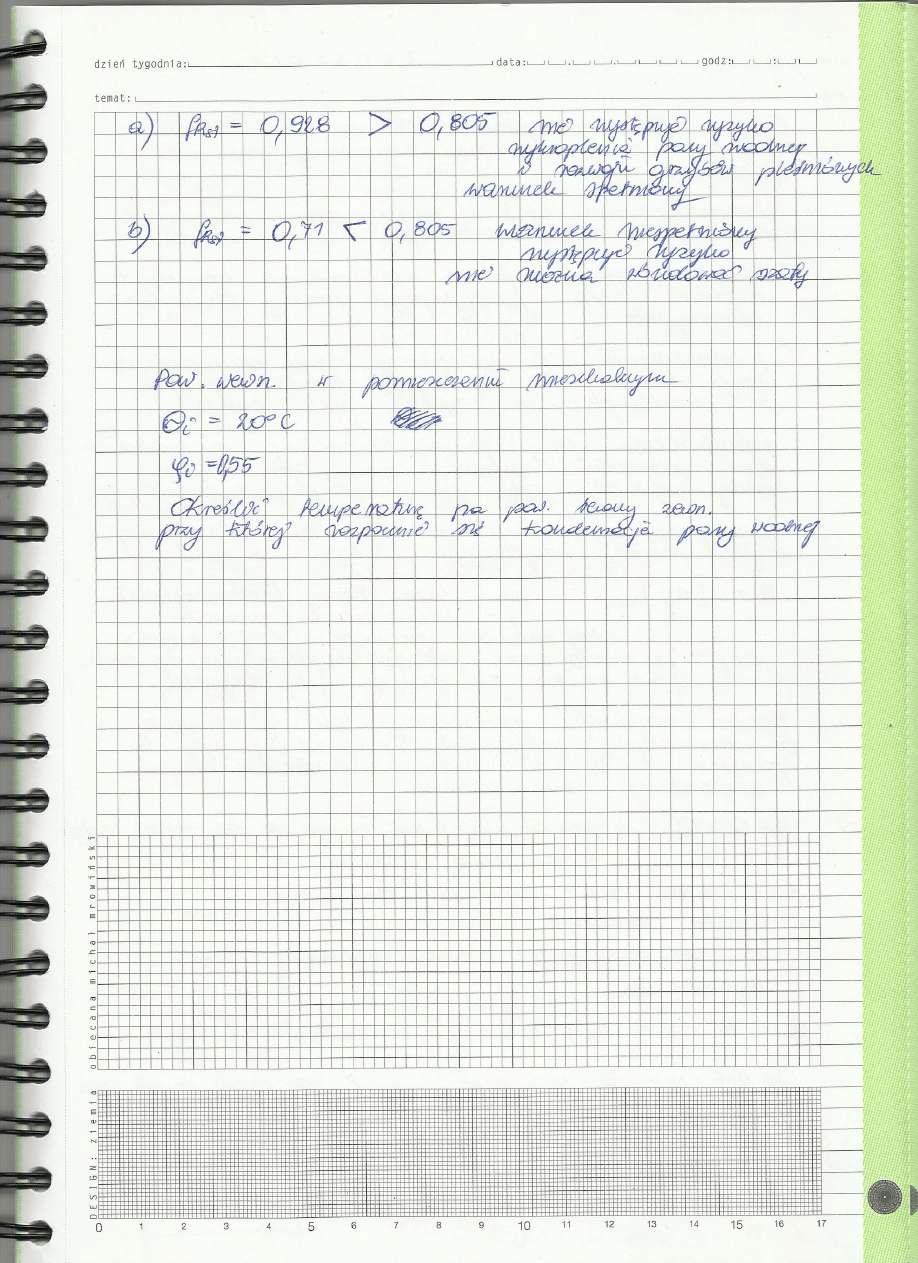 dzień tygodnia: data: godz:
temat:
a) fRsi = 0,928 > 0,805 nie występuje ryzyko
wykroplenia pary wodnej
i rozwoju grzybów pleśniowych
warunek spełniony
b) fRsi = 0,71 < 0,805 warunek niespełniony
występuje ryzyko
nie można zbudować szafy
Pow. wewn. w pomieszczeniu mieszkalnym
Θi = 20°C
φi = 0,55
Określić temperaturę na pow. ściany zewn.
przy której rozpocznie się kondensacja pary wodnej
obiecana michał mrowiński
DESIGN: ziemia
0 1 2 3 4 5 6 7 8 9 10 11 12 13 14 15 16 17